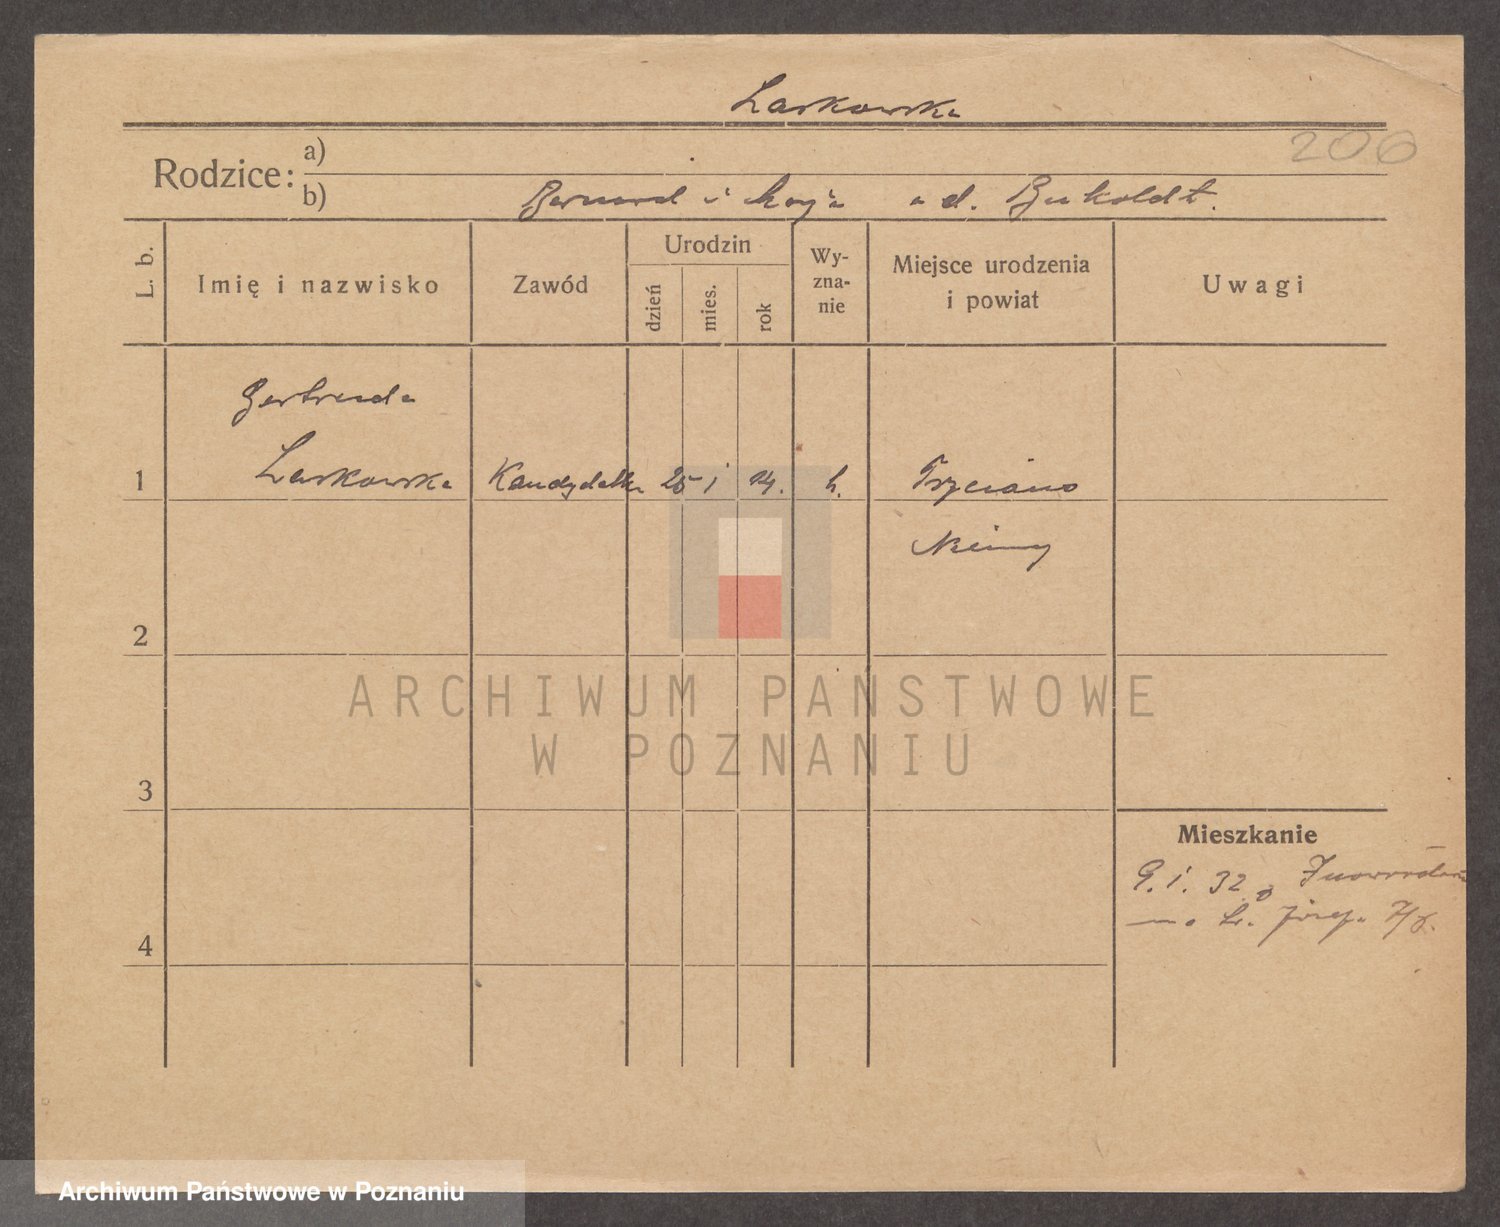 Laskowska
206
Rodzice: a)
b) Bernard i Maria a d. Bukoldt.
L. b.
Imię i nazwisko
Zawód
Urodzin
dzień
mies.
rok
Wy-
zna-
nie
Miejsce urodzenia
i powiat
Uwagi
Gertruda
1 Laskowska Kandydatka 25 1 14. k. Trzciano
Niemcy
2
ARCHIWUM PAŃSTWOWE
W POZNANIU
3
Mieszkanie
9. 1. 32 z
św. Józefa 7/8.
4
Archiwum Państwowe w Poznaniu